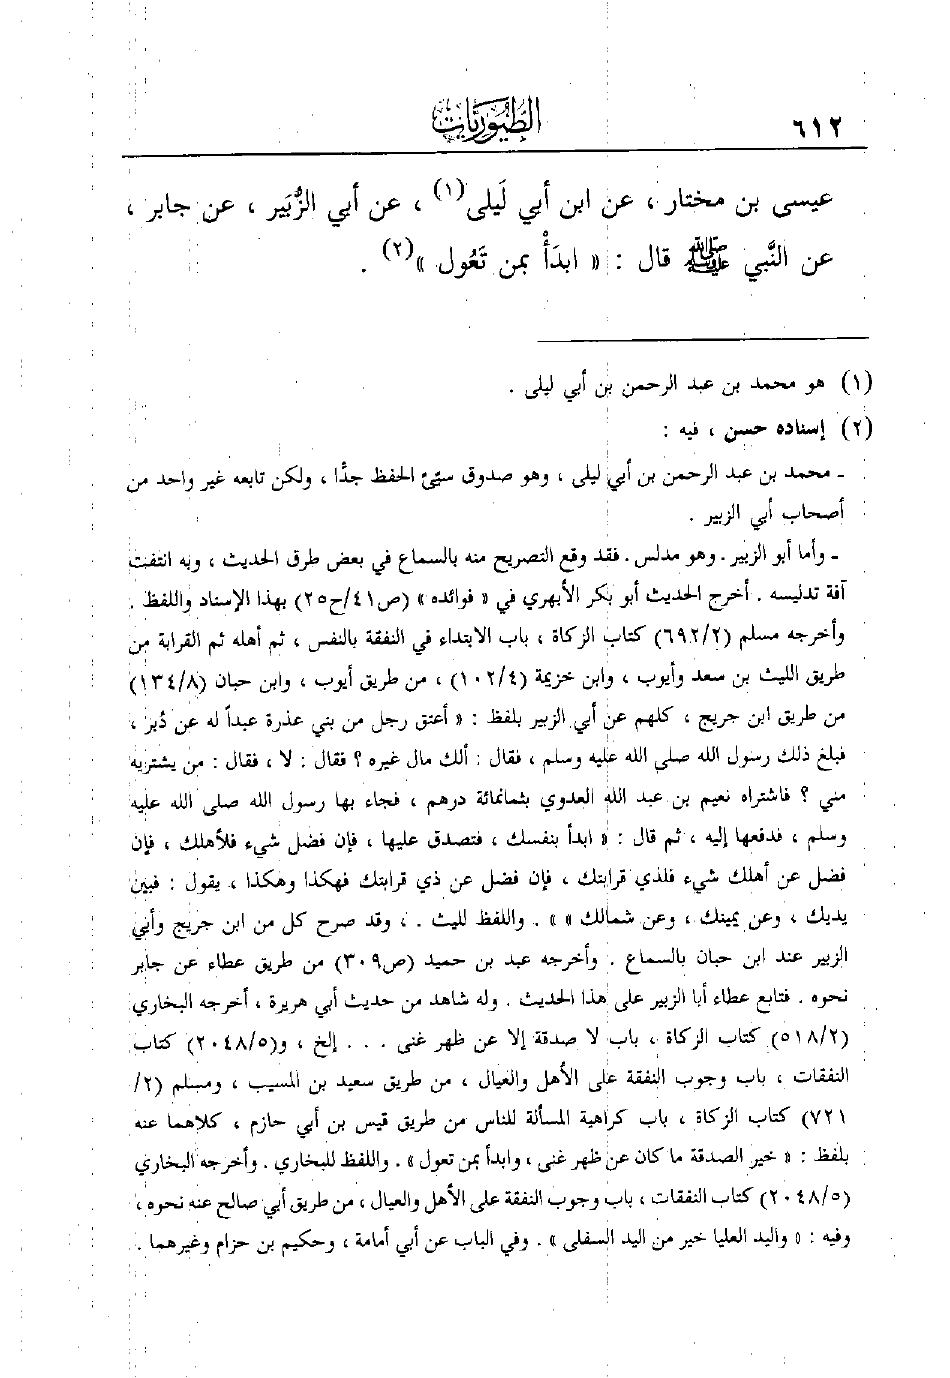 ٦١٢
الطيوريات
عيسى بن مختار ، عن ابن أبي لَيلى(١) ، عن أبي الزُّبَير ، عن جابر ،
عن النَّبي ﷺ قال : « ابدَأْ بمن تَعُول »(٢) .
(١) هو محمد بن عبد الرحمن بن أبي ليلى .
(٢) إسناده حسن ، فيه :
ـ محمد بن عبد الرحمن بن أبي ليلى ، وهو صدوق سيّئ الحفظ جدًّا ، ولكن تابعه غير واحد من
أصحاب أبي الزبير .
ـ وأما أبو الزبير ـ وهو مدلس ـ فقد وقع التصريح منه بالسماع في بعض طرق الحديث ، وبه انتفت
آفة تدليسه . أخرج الحديث أبو بكر الأبهري في « فوائده » (ص٤١/ح٢٥) بهذا الإسناد واللفظ .
وأخرجه مسلم (٦٩٢/٢) كتاب الزكاة ، باب الابتداء في النفقة بالنفس ، ثم أهله ثم القرابة من
طريق الليث بن سعد وأيوب ، وابن خزيمة (١٠٢/٤) ، من طريق أيوب ، وابن حبان (١٣٤/٨)
من طريق ابن جريج ، كلهم عن أبي الزبير بلفظ : « أعتق رجل من بني عذرة عبداً له عن دُبر ،
فبلغ ذلك رسول الله صلى الله عليه وسلم ، فقال : ألك مال غيره ؟ فقال : لا ، فقال : من يشتريه
مني ؟ فاشتراه نعيم بن عبد الله العدوي بثمانمائة درهم ، فجاء بها رسول الله صلى الله عليه
وسلم ، فدفعها إليه ، ثم قال : « ابدأ بنفسك ، فتصدق عليها ، فإن فضل شيء فلأهلك ، فإن
فضل عن أهلك شيء فلذي قرابتك ، فإن فضل عن ذي قرابتك فهكذا وهكذا ، يقول : فبين
يديك ، وعن يمينك ، وعن شمالك » » . واللفظ لليث . ، وقد صرح كل من ابن جريج وأبي
الزبير عند ابن حبان بالسماع . وأخرجه عبد بن حميد (ص٣٠٩) من طريق عطاء عن جابر
نحوه . فتابع عطاء أبا الزبير على هذا الحديث . وله شاهد من حديث أبي هريرة ، أخرجه البخاري
(٥١٨/٢) كتاب الزكاة ، باب لا صدقة إلا عن ظهر غنى . . . إلخ ، و(٢٠٤٨/٥) كتاب
النفقات ، باب وجوب النفقة على الأهل والعيال ، من طريق سعيد بن المسيب ، ومسلم (٢/
٧٢١) كتاب الزكاة ، باب كراهية المسألة للناس من طريق قيس بن أبي حازم ، كلاهما عنه
بلفظ : « خير الصدقة ما كان عن ظهر غنى ، وابدأ بمن تعول » . واللفظ للبخاري . وأخرجه البخاري
(٢٠٤٨/٥) كتاب النفقات ، باب وجوب النفقة على الأهل والعيال ، من طريق أبي صالح عنه نحوه ،
وفيه : « واليد العليا خير من اليد السفلى » . وفي الباب عن أبي أمامة ، وحكيم بن حزام وغيرهما .